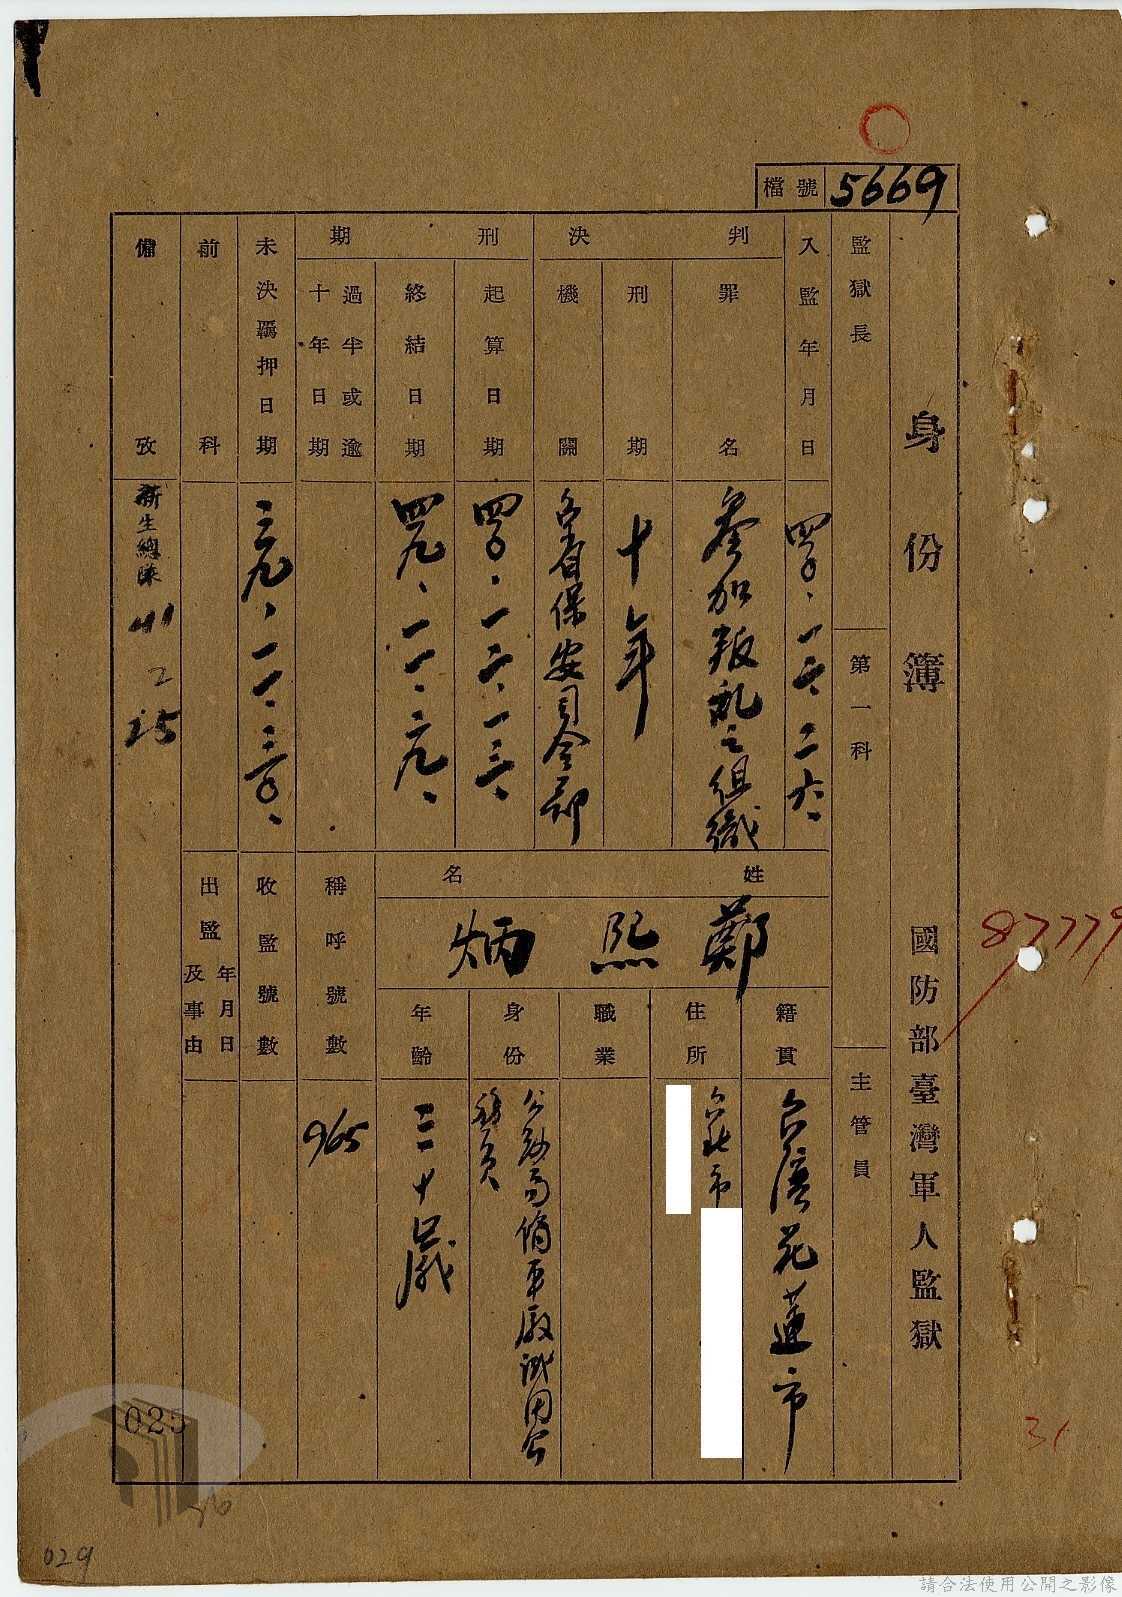 檔號 5669
身份簿
國防部臺灣軍人監獄
87779
監獄長
第一科
主管員
入監年月日
四〇、一二、二六、
判決
罪名
參加叛乱之組織
刑期
十年
機關
台省保安司令部
刑期
起算日期
四〇、一二、一三、
終結日期
四九、一一、二九、
過半或逾十年日期
未決羈押日期
三九、一一、三〇、
前科
備攷
新生總隊
41
2
25
姓名
鄭熙炳
籍貫
台湾花蓮市
住所
台北市
職業
身份
公路局修車廠試用公務員
年齡
三十歲
稱呼號數
965
收監號數
出監年月日及事由
025
029
31
請合法使用公開之影像